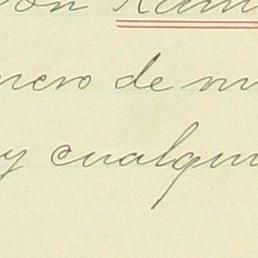 on Ram
nero de m
y cualqui